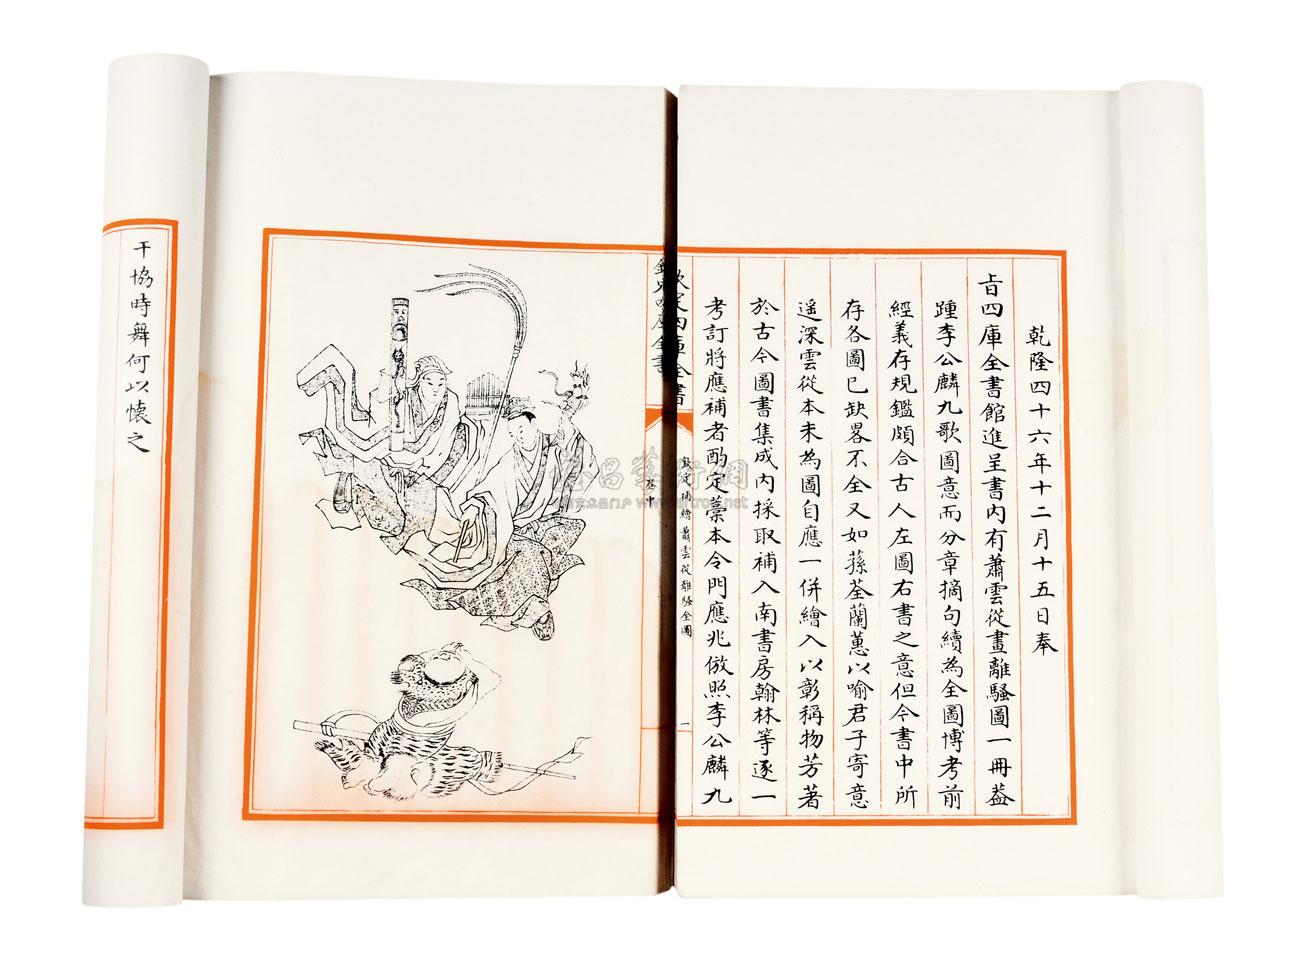 乾隆四十六年十二月十五日奉
旨四庫全書館進呈書內有蕭雲從畫離騷圖一冊葢
踵李公麟九歌圖意而分章摘句續為全圖博考前
經義存規鑑頗合古人左圖右書之意但今書中所
存各圖已缺畧不全又如蓀荃蘭蕙以喻君子寄意
遥深雲從本未為圖自應一併繪入以彰稱物芳著
於古今圖書集成內採取補入南書房翰林等逐一
考訂將應補者酌定藁本令門應兆倣照李公麟九
欽定四庫全書
欽定補繪蕭雲從離騷全圖
一
卷中
干協時舞何以懷之